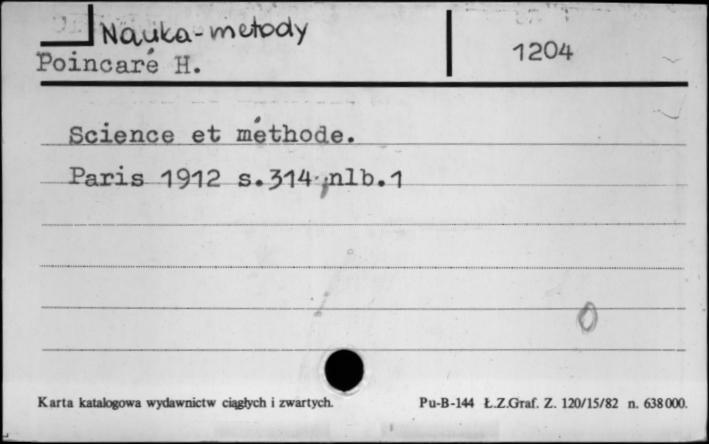 Nauka-metody
Poincaré H.
1204
Science et méthode.
Paris 1912 s.314 ,nlb.1
Karta katalogowa wydawnictw ciągłych i zwartych.
Pu-B-144 Ł.Z.Graf. Z. 120/15/82 n. 638000.